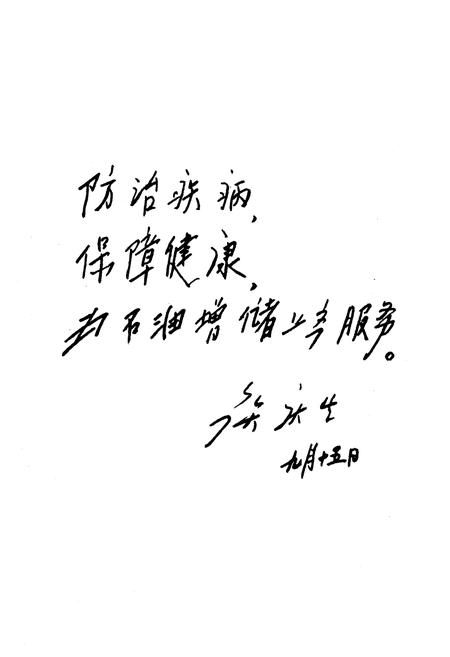 防治疾病,
保障健康,
为石油增储上产服务。
庆生
九月十五日